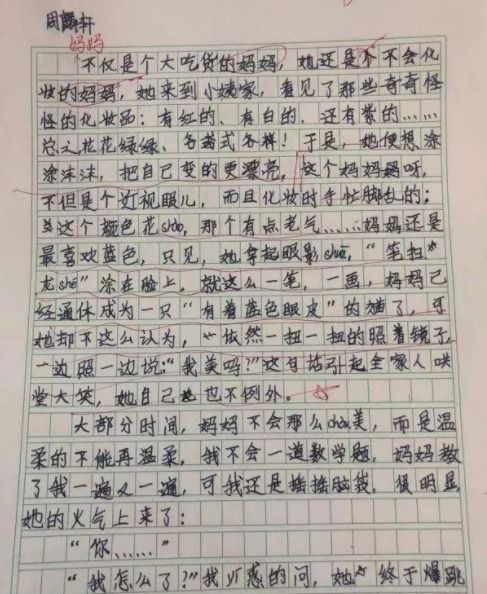 周麟轩
妈妈
不仅是个大吃货的妈妈，她还是个不会化
妆的妈妈，她来到小姨家，看见了那些奇奇怪
怪的化妆品：有红的、有白的、还有紫的……
总之花花绿绿、各式各样！于是，她便想涂
涂沫沫，把自己变的更漂亮，这个妈妈呀，
不但是个近视眼儿，而且化妆时手忙脚乱的：
这个颜色花shào，那个有点老气……妈妈还是
最喜欢蓝色，只见，她拿起眼影shū，“笔扫
龙shé”涂在脸上，就这么一笔，一画，妈妈已
经通休成为一只“有着蓝色眼皮”的猫了，可
她却不这么认为，依然一扭一扭的照着镜子，
一边照一边说：“我美吗？”这句话引起全家人哄
堂大笑，她自己也不例外。
大部分时间，妈妈不会那么chòu美，而是温
柔的不能再温柔，我不会一道数学题，妈妈教
了我一遍又一遍，可我还是摇摇脑袋，很明显
她的火气上来了：
“你……”
“我怎么了？”我惑的问，她终于爆跳